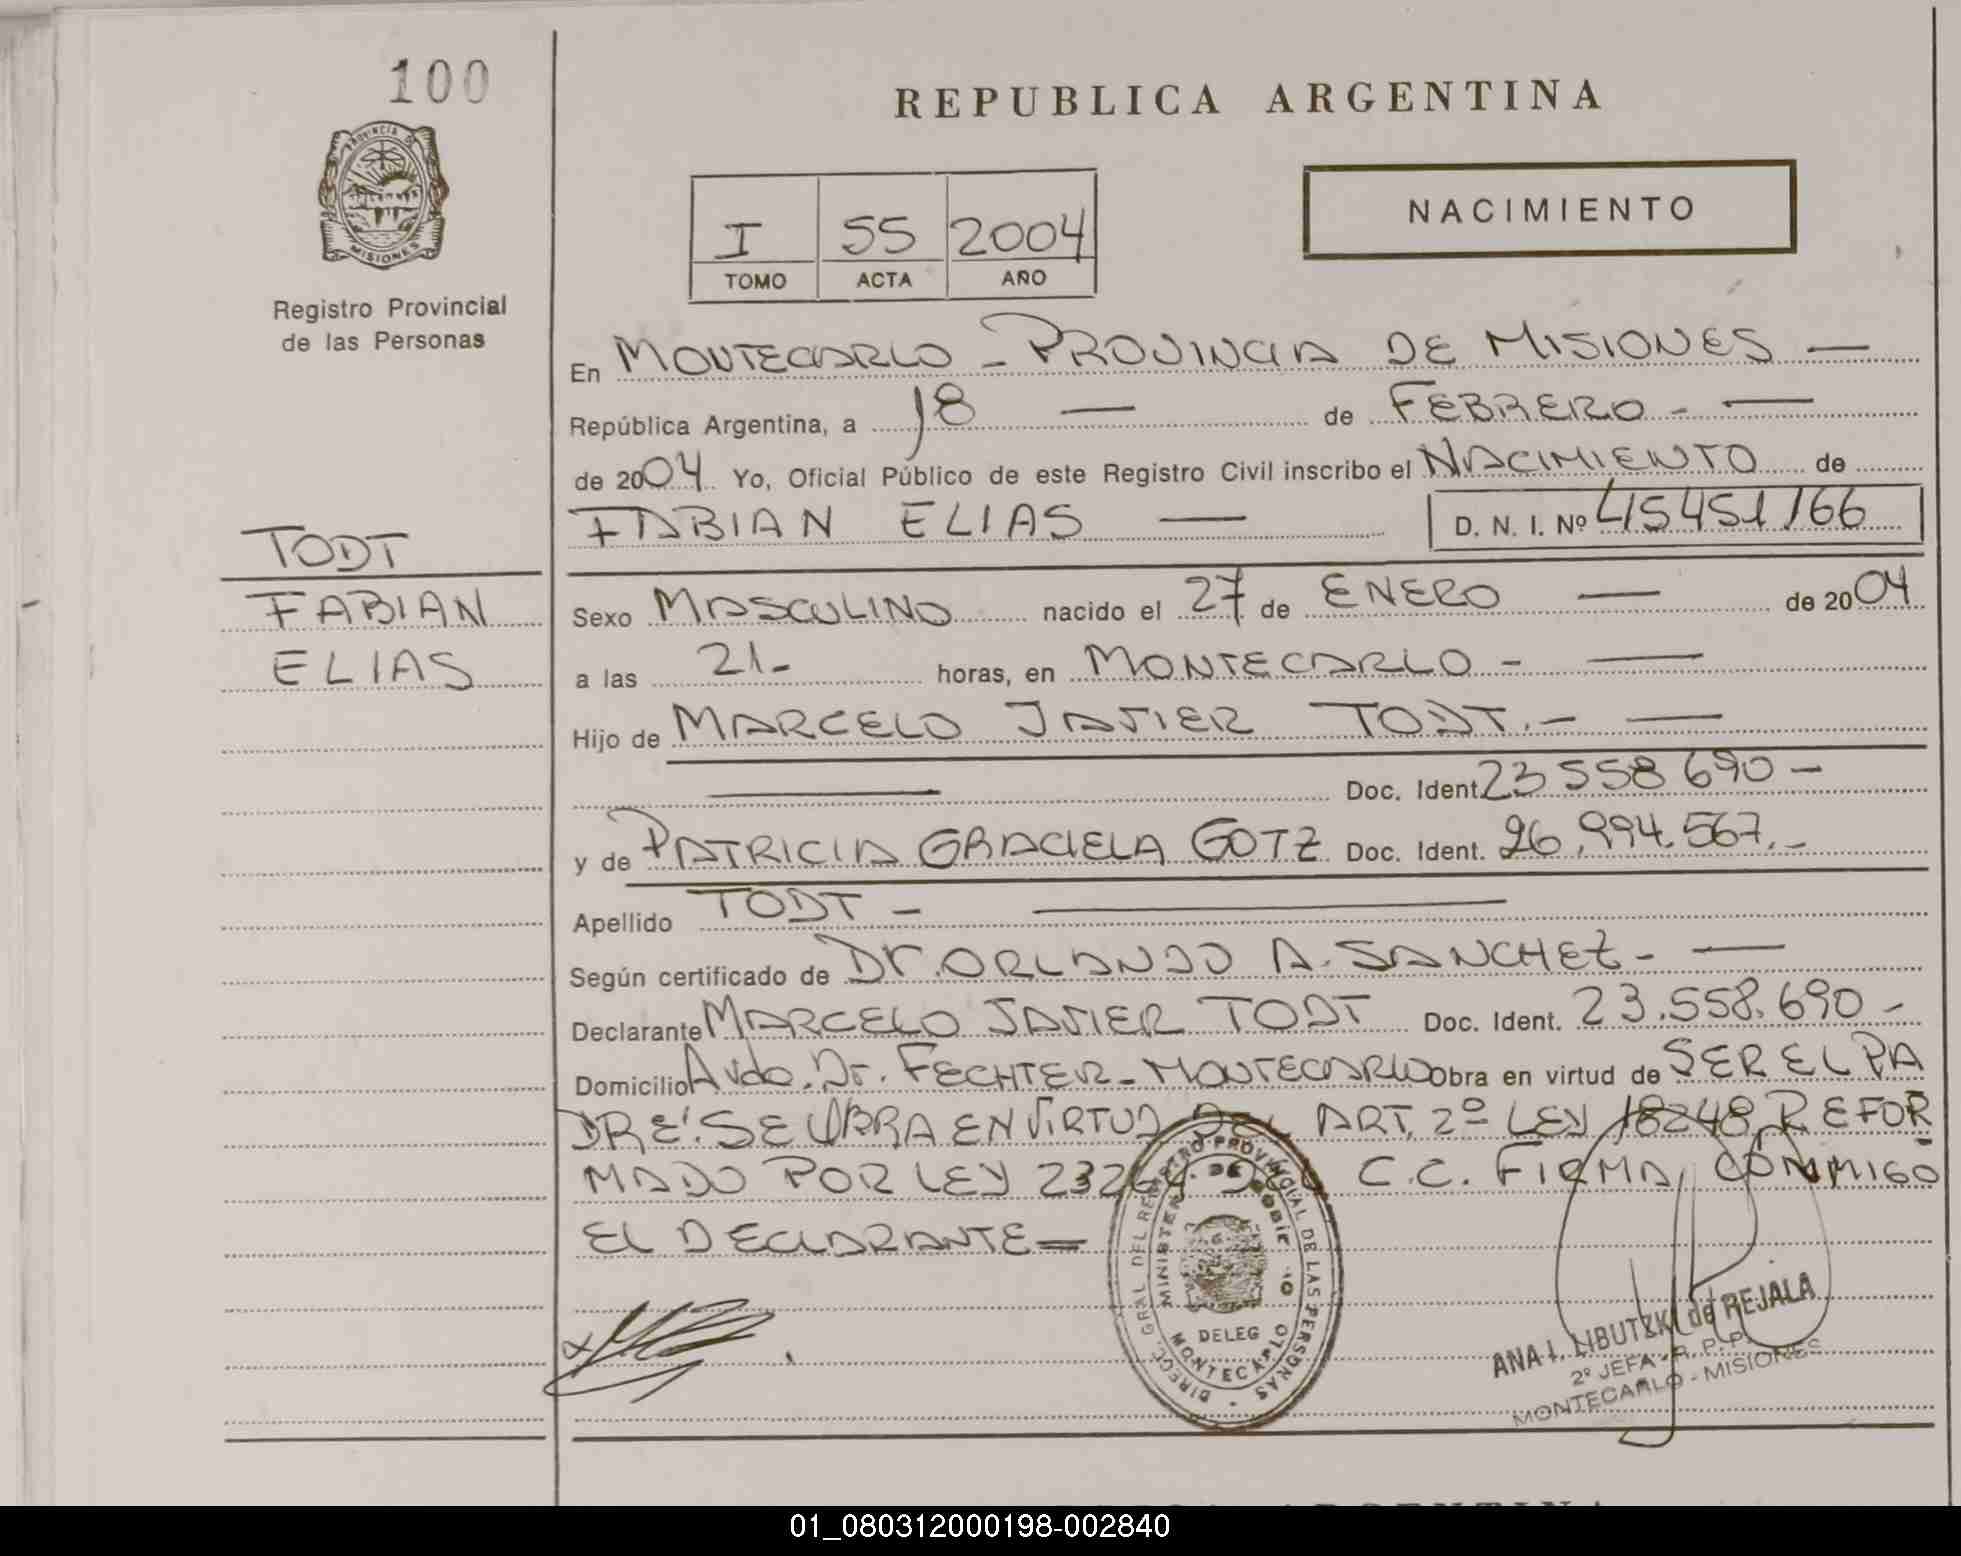 100
REPUBLICA ARGENTINA
NACIMIENTO
I 55 2004
TOMO ACTA AÑO
PROVINCIA DE MISIONES
Registro Provincial
de las Personas
En MONTECARLO - PROVINCIA DE MISIONES —
República Argentina, a 18 — de FEBRERO - —
de 2004 Yo, Oficial Público de este Registro Civil inscribo el NACIMIENTO de
FABIAN ELIAS — D. N. I. Nº 45451166
TODT
FABIAN
ELIAS
Sexo MASCULINO nacido el 27 de ENERO — de 2004
a las 21- horas, en MONTECARLO - —
Hijo de MARCELO JAVIER TODT.- —
— Doc. Ident. 23558690 -
y de PATRICIA GRACIELA GOTZ Doc. Ident. 26.994.567.-
Apellido TODT - —
Según certificado de Dr. ORLANDO A. SANCHEZ - —
Declarante MARCELO JAVIER TODT Doc. Ident. 23.558.690 -
Domicilio Avda. Dr. FECHTER - MONTECARLO Obra en virtud de SER EL PA
DRE. SE OBRA EN VIRTUD DEL ART. 2º LEY 18248 REFOR
MADO POR LEY 23264 DEL C.C. FIRMA CONMIGO
EL DECLARANTE =
DIRECC. GRAL DEL REGISTRO PROVINCIAL DE LAS PERSONAS
DELEG
MONTECARLO
ANA I. LIBUTZKI de REJALA
2º JEFA - R. P. P.
MONTECARLO - MISIONES
01_080312000198-002840